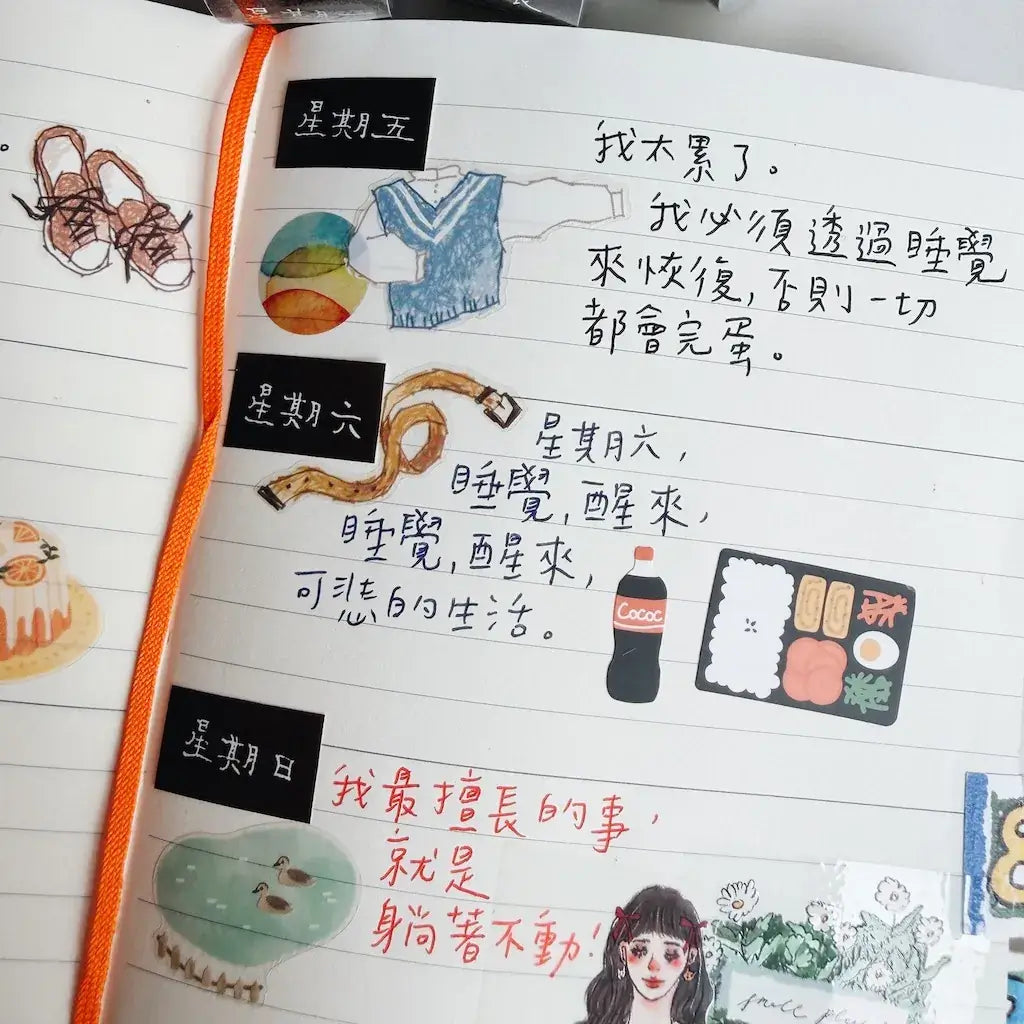 星期五
我太累了。
我必須透過睡覺
來恢復,否則一切
都會完蛋。
星期六
星期六,
睡覺,醒來,
睡覺,醒來,
可悲的生活。
Cococ
星期日
我最擅長的事,
就是
躺著不動!
8